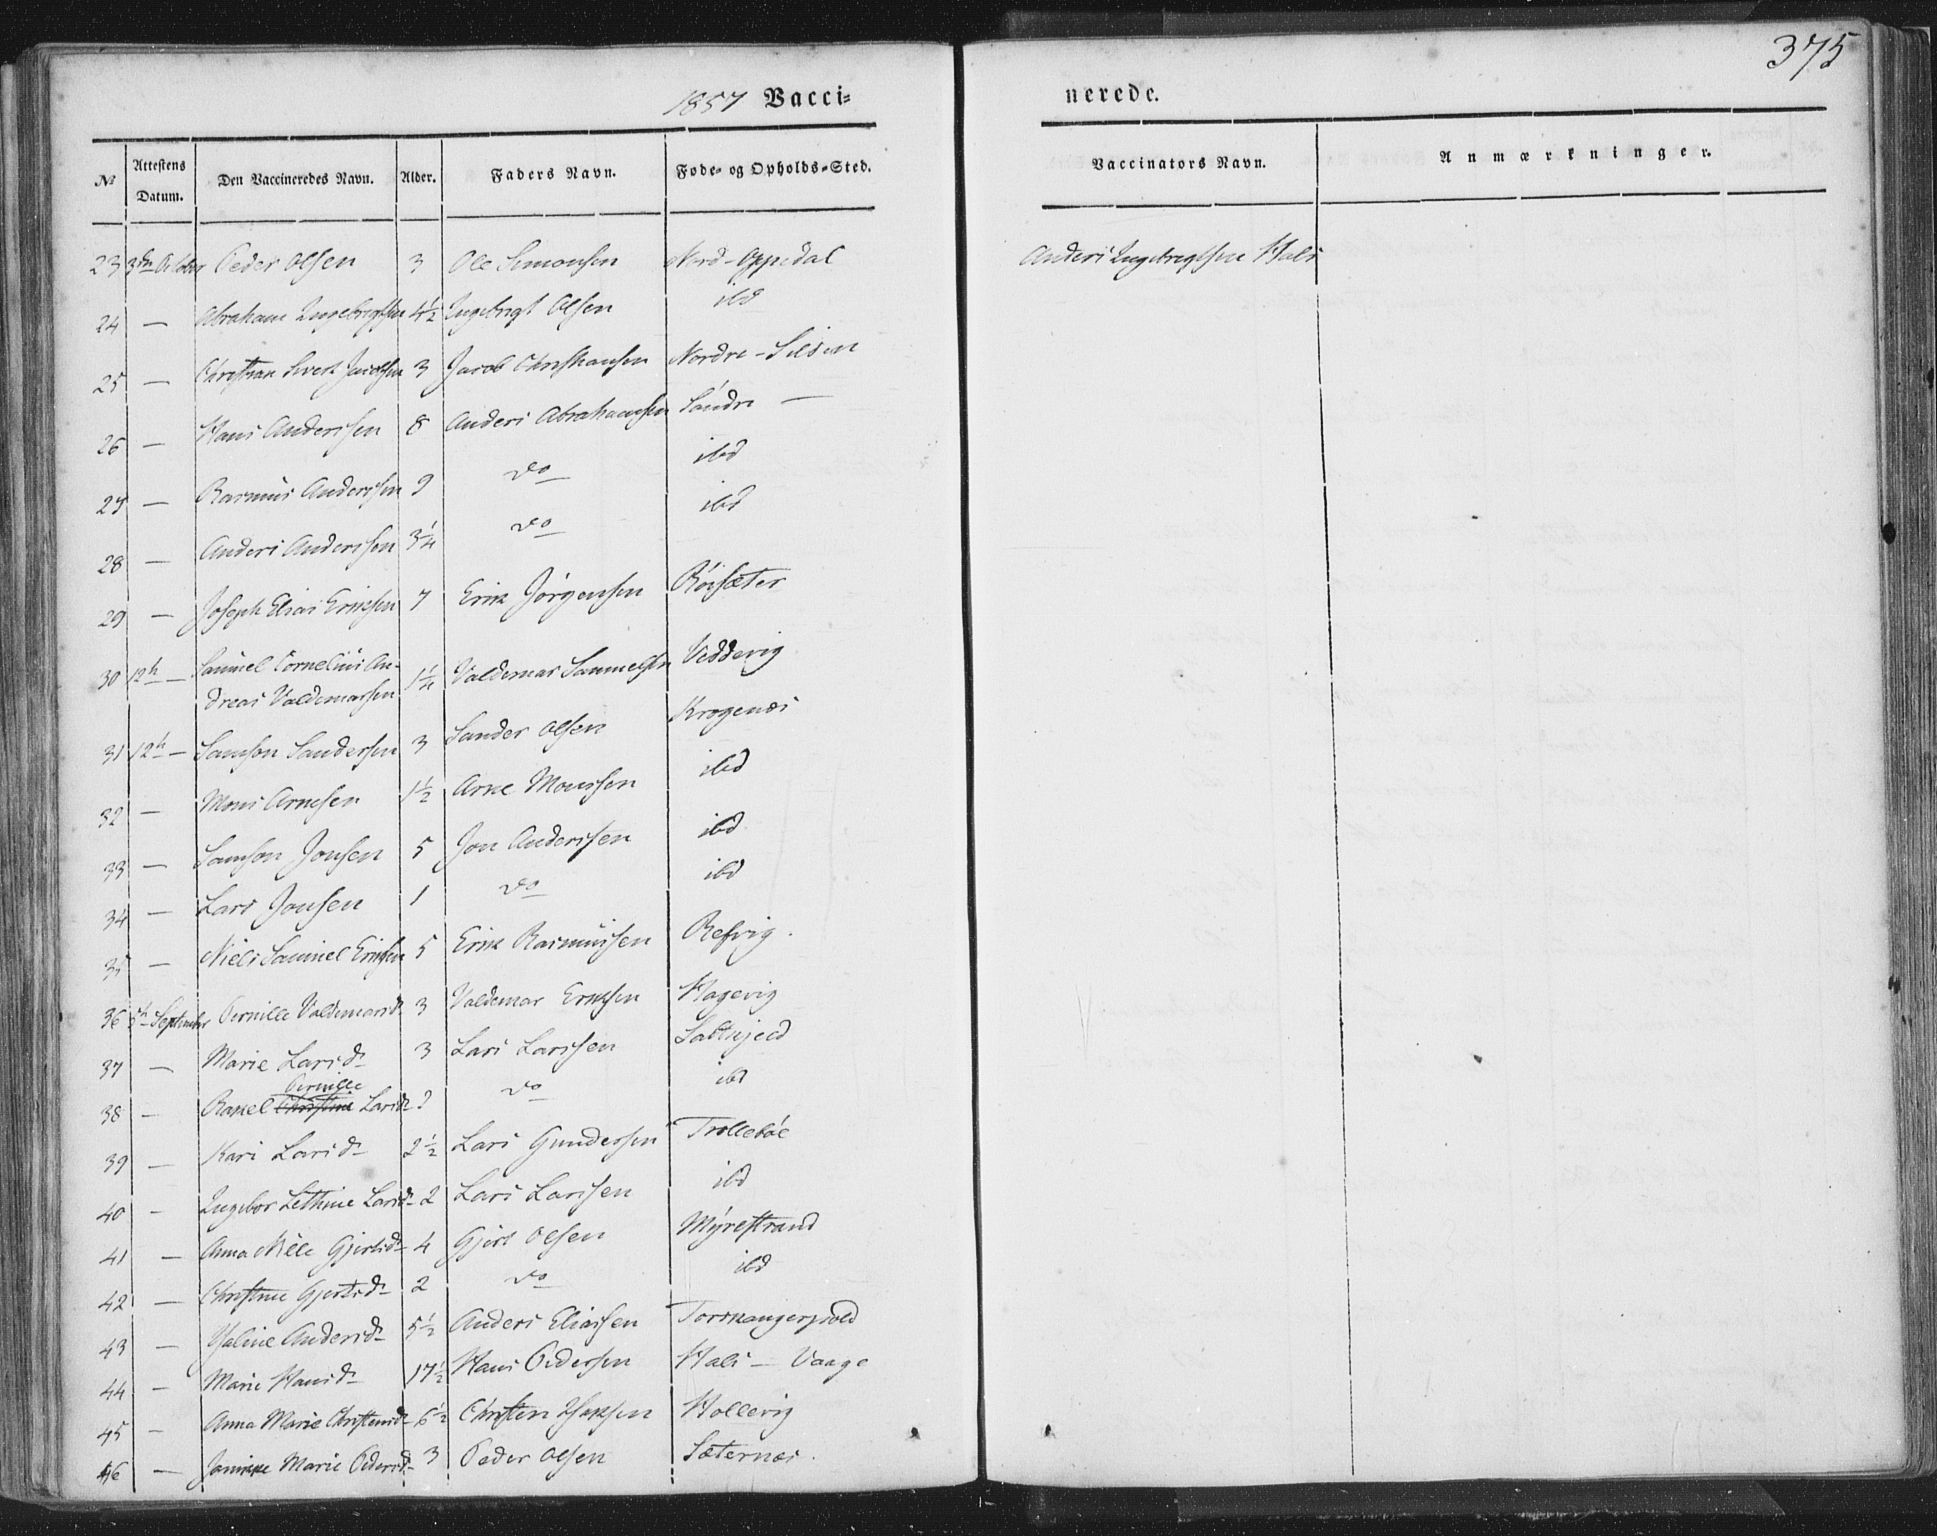 375
1857 Vacci=
nerede.
No Attestens Datum. Den Vaccineredes Navn. Alder. Faders Navn. Føde- og Opholds-Sted. Vaccinators Navn. Anmærkninger.
23 Peder Olsen 3 Ole Simonsen Nord-Oppedal Anders Ingebregtsen Hals
24 — Abraham Ingebrigtsen 4½ Ingebrigt Olsen ibd
25 — Christian Sivert Jacobsen 3 Jacob Christiansen Nordre-
26 — Hans Anderssen 8 Anders Abrahamsen Søndre —
27 — Rasmus Anderssen 9 do ibd
28 — Anders Anderssen 3¼ do ibd
29 — Joseph Elias Eriksen 7 Erik Jörgensen Röisæter
30 12te — Samuel Cornelius An-
dreas Valdemarsen 1¼ Valdemar Sammelsen Veddevig
31 12te — Samson Sandersen 3 Sander Olsen Krogenæs
32 — Mons Arnesen 1½ Arne Monssen ibd
33 — Samson Jonsen 5 Jon Anderssen ibd
34 — Lars Jonsen 1 do ibd
35 — Niels Samuel Eriksen 5 Erik Rasmussen Refvig.
36 5te September Pernille Valdemarsd. 3 Valdemar Eriksen Hagevig
37 — Marie Larsd. 3 Lars Larssen Saltkjeld
Pernille
38 — Rakel Christine Larsd. ? do ibd
39 — Kari Larsd. 2½ Lars Gundersen Trolleböe
40 — Ingebor Lethine Larsd. 2 Lars Larssen ibd
41 — Anna Nille Gjertsd. 4 Gjert Olsen Myrestrand
42 — Christine Gjertsd. 2 do ibd
43 — Andersd. 5½ Anders Eliassen Torskangerpold
44 — Marie Hansd. 17½ Hans Pedersen Hals — Vaage
45 — Anna Marie Christensd. 6½ Christen Hollevig
46 — Marie Pedersd. 3 Peder Olsen Sæternes.